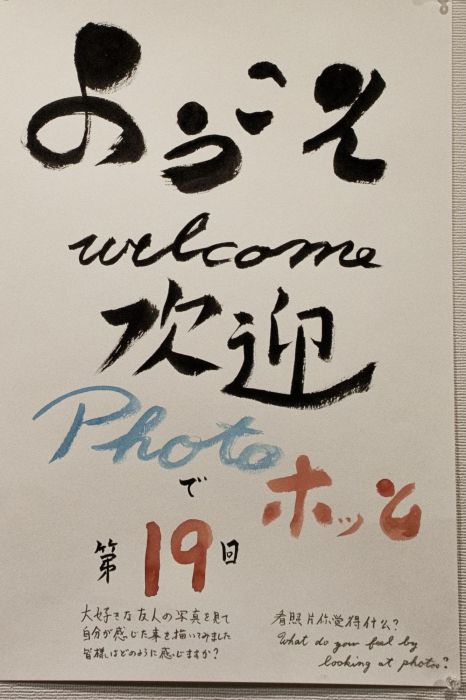 ようこそ
welcome
欢迎
Photo
で
ホッと
第19回
大好きな友人の写真を見て
自分が感じた事を描いてみました
皆様はどのように感じますか?
看照片你觉得什么?
What do your feel by
looking at photos?